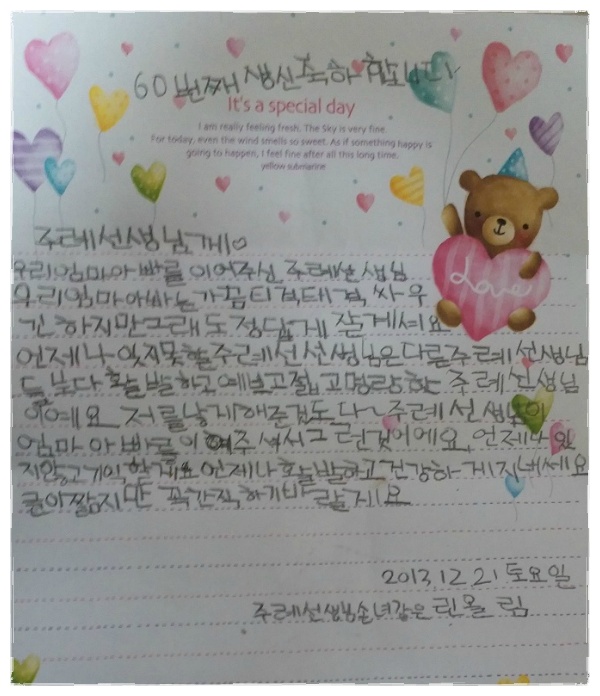 60번째 생신 축하 합니다
It's a special day
I am really feeling fresh. The Sky is very fine
For today, even the wind smells so sweet. As if something happy is
going to happen, I feel fine after all this long time.
yellow submarine
주례선생님께
우리엄마아빠를 이어주신 주례선생님
우리엄마아빠는 가끔 티격태격 싸우
긴 하지만그래도 정답게 잘 계셔요
언제나 잊지못할주례선생님은 다른주례선생님
들 보다 활발하고 예쁘고 멋고 명랑한 주례선생님
이예요 저를낳게해준것도 다~주례선생님이
엄마 아빠를 이어주셔서그런것이에요. 언제나 잊
지않고기억할게요 언제나 활발하고건강하게지내세요
글이짧지만 꼭간직하기바랄게요
2013.12.21 토요일
주례선생님손녀같은 린올림
Love